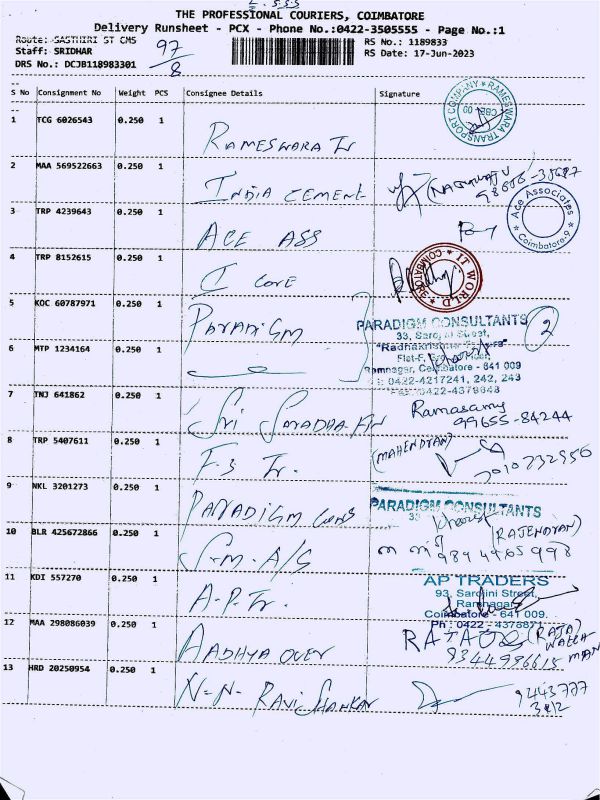 THE PROFESSIONAL COURIERS, COIMBATORE
Delivery Runsheet - PCX - Phone No.:0422-3505555 - Page No.:1
Route: SASTHIRI ST CMS
Staff: SRIDHAR
DRS No.: DCJB118983301
97/8
RS No.: 1189833
RS Date: 17-Jun-2023
S No Consignment No Weight PCS Consignee Details Signature
1 TCG 6026543 0.250 1 RAMESWARA Tr
RAMESWARA TRANSPORT COMPANY CBE-09
2 MAA 569522663 0.250 1 INDIA CEMENT
3 TRP 4239643 0.250 1 ACE ASS
Ace Associates Coimbatore-9
4 TRP 8152615 0.250 1 I CORE
IT WORLD COIMBATORE
5 KOC 60787971 0.250 1 PARADIGM
PARADIGM CONSULTANTS 2
33, Sarojini Street,
"Radhakrishna
6 MTP 1234164 0.250 1
Ramnagar, Coimbatore - 641 009
0422-4217241, 242, 243
Fax: 0422-4378643
7 TNJ 641862 0.250 1 Sri SARADHA Fin
Ramasamy
99655-84244
8 TRP 5407611 0.250 1 F.S Tr.
(MAHENDRAN)
9 NKL 3201273 0.250 1 PARADIGM Cons
PARADIGM CONSULTANTS
33
10 BLR 425672866 0.250 1 S-M-A/S
(RAJENDRAN)
11 KDI 557270 0.250 1 A-P-Tr.
AP TRADERS
93, Sarojini Street,
Ramnagar
Coimbatore - 641 009.
Ph : 0422 - 4376871
12 MAA 298086039 0.250 1 AADHYA OVER
(RAJA)
13 HRD 20250954 0.250 1 N-N- RAVI SHANKAR
9443777